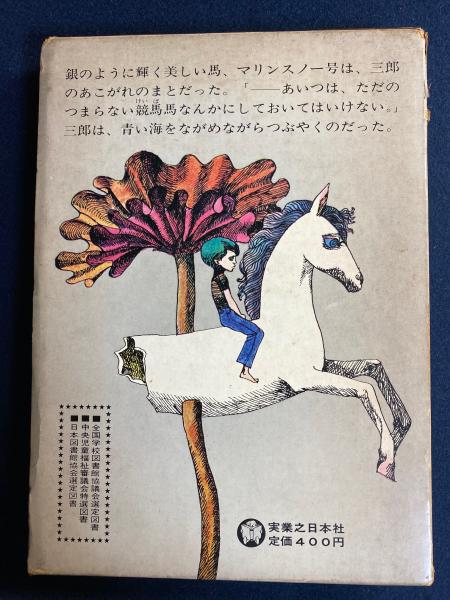 銀のように輝く美しい馬、マリンスノー号は、三郎
のあこがれのまとだった。「――あいつは、ただの
つまらない競馬馬なんかにしておいてはいけない。」
けいば
三郎は、青い海をながめながらつぶやくのだった。
■全国学校図書館協議会選定図書
■中央児童福祉審議会特選図書
■日本図書館協会選定図書
実業之日本社
定価400円